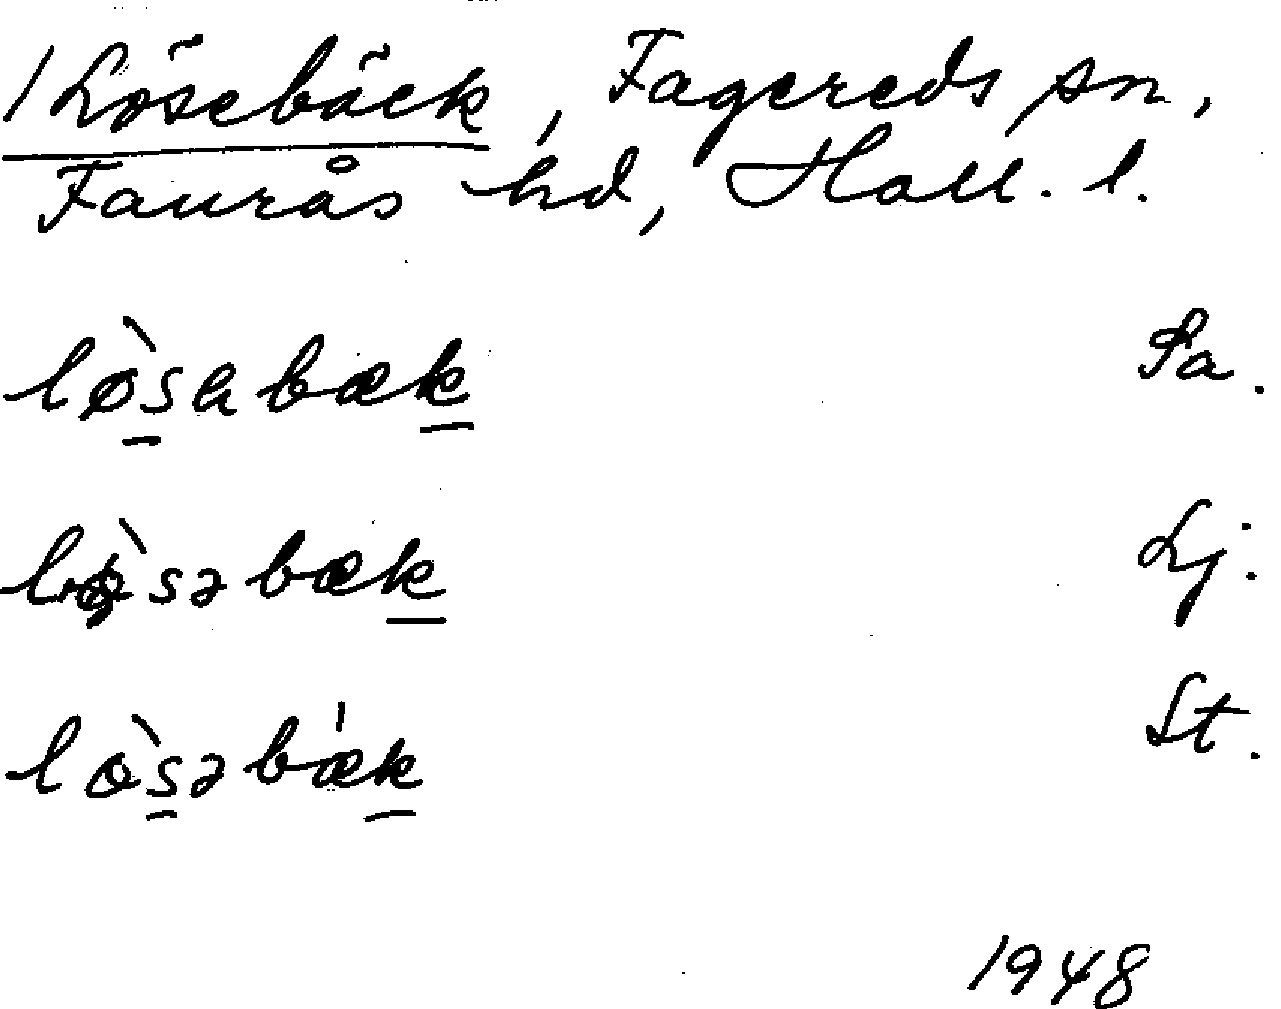 1 Lösebäck, Fagereds sn,
Faurås hd, Hall. l.
lø̀sabæk Sa.
lø̀səbæk Lj.
lòsəbæ̍k St.
1948